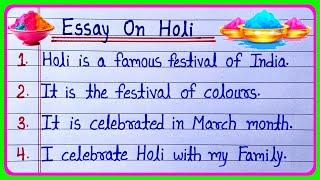 Essay On Holi
1. Holi is a famous festival of India.
2. It is the festival of colours.
3. It is celebrated in March month.
4. I celebrate Holi with my Family.